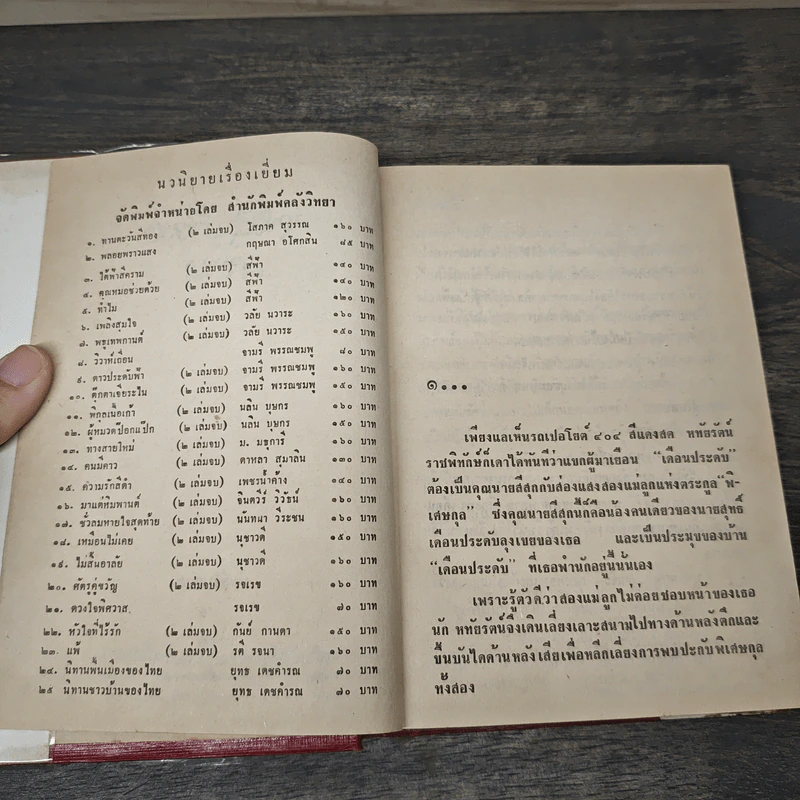 นวนิยายเรื่องเยี่ยม
จัดพิมพ์จำหน่ายโดย สำนักพิมพ์คลังวิทยา
๑. ทานตะวันสีทอง (๒ เล่มจบ) โสภาค สุวรรณ ๑๖๐ บาท
๒. พลอยพราวแสง กฤษณา อโศกสิน ๘๕ บาท
๓. ใต้ฟ้าสีคราม (๒ เล่มจบ) สีฟ้า ๑๔๐ บาท
๔. คุณหมอช่วยด้วย (๒ เล่มจบ) สีฟ้า ๑๔๐ บาท
๕. ทำไม (๒ เล่มจบ) สีฟ้า ๑๒๐ บาท
๖. เพลงสุมใจ (๒ เล่มจบ) วลัย นวาระ ๑๖๐ บาท
๗. พธูเทพกานต์ (๒ เล่มจบ) วลัย นวาระ ๑๕๐ บาท
๘. วิวาห์เถื่อน จามรี พรรณชมพู ๘๐ บาท
๙. ดาวประดับฟ้า (๒ เล่มจบ) จามรี พรรณชมพู ๑๖๐ บาท
๑๐. ตุ๊กตาเจียระไน (๒ เล่มจบ) จามรี พรรณชมพู ๑๕๐ บาท
๑๑. พิกุลเนื้อเก้า (๒ เล่มจบ) นลิน บุษกร ๑๖๐ บาท
๑๒. ผู้หมวดป๊อกแป๊ก (๒ เล่มจบ) นลิน บุษกร ๑๕๐ บาท
๑๓. ทางสายใหม่ (๒ เล่มจบ) ม. มธุการี ๑๖๐ บาท
๑๔. คนมีคาว (๒ เล่มจบ) ดาหลา สุมาลิน ๑๓๐ บาท
๑๕. ความรักสีดำ (๒ เล่มจบ) เพชรน้ำค้าง ๑๕๐ บาท
๑๖. มาแต่หิมพานต์ (๒ เล่มจบ) จินตวีร์ วิวัธน์ ๑๖๐ บาท
๑๗. ชั่วลมหายใจสุดท้าย (๒ เล่มจบ) นันทนา วีระชน ๑๖๐ บาท
๑๘. เหมือนไม่เคย (๒ เล่มจบ) นุชาวดี ๑๕๐ บาท
๑๙. ไม่สิ้นอาลัย (๒ เล่มจบ) นุชาวดี ๑๖๐ บาท
๒๐. ศัตรูคู่ขวัญ (๒ เล่มจบ) รจเรข ๑๖๐ บาท
๒๑. ดวงใจพิศวาส รจเรข ๗๐ บาท
๒๒. หัวใจที่ไร้รัก (๒ เล่มจบ) กันย์ กานดา ๑๕๐ บาท
๒๓. แพ้ (๒ เล่มจบ) รตี รจนา ๑๖๐ บาท
๒๔. นิทานพื้นเมืองของไทย ยุทธ เดชคำรณ ๗๐ บาท
๒๕ นิทานชาวบ้านของไทย ยุทธ เดชคำรณ ๗๐ บาท
๑...
เพียงแลเห็นรถเปอโยต์ ๔๐๔ สีแดงสด หทัยรัตน์
ราชพิทักษ์ก็เดาได้ทันทีว่าแขกผู้มาเยือน “เดือนประดับ”
ต้องเป็นคุณนายสีสุกกับส่องแสงสองแม่ลูกแห่งตระกูล “พิ-
เศษกุล” ซึ่งคุณนายสีสุกนี้ก็คือน้องคนเดียวของนายสุทธิ์
เดือนประดับลุงเขยของเธอ และเป็นประมุขของบ้าน
“เดือนประดับ” ที่เธอพำนักอยู่นี้นั่นเอง
เพราะรู้ตัวดีว่าสองแม่ลูกไม่ค่อยชอบหน้าของเธอ
นัก หทัยรัตน์จึงเดินเลี่ยงเลาะสนามไปทางด้านหลังตึกและ
ขึ้นบันไดด้านหลัง เสียเพื่อหลีกเลี่ยงการพบปะกับพิเศษกุล
ทั้งสอง